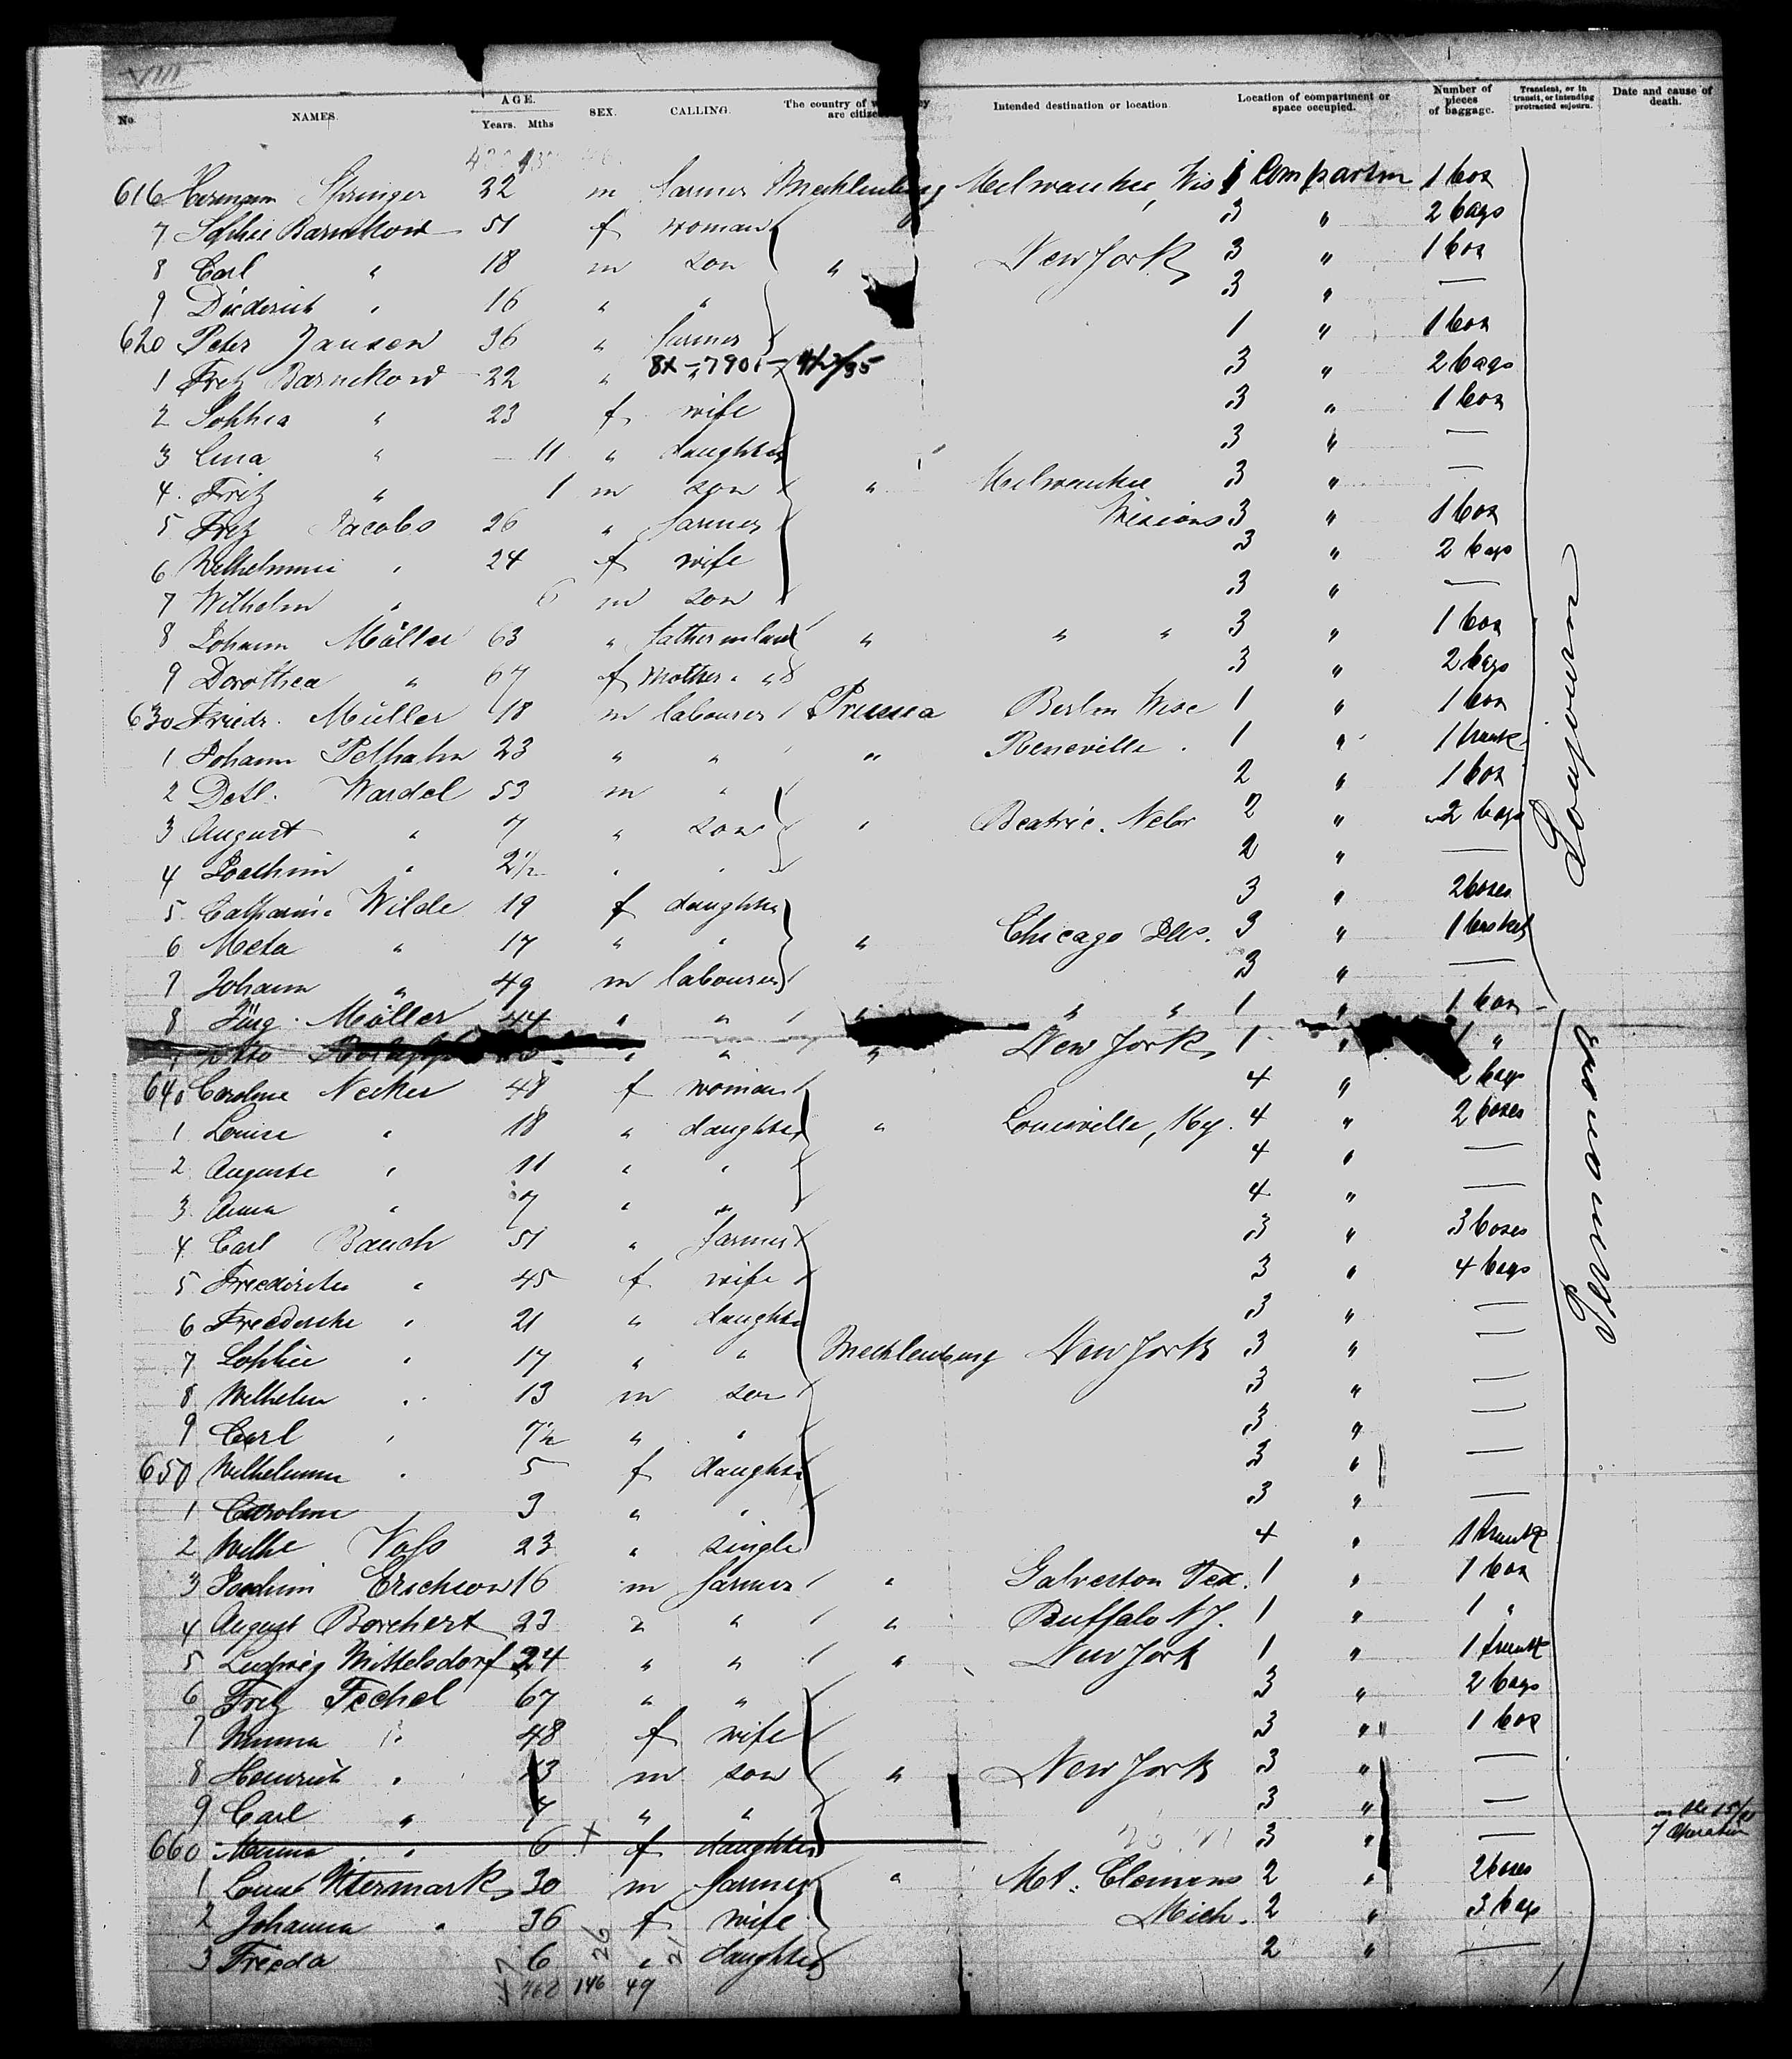 VIII
No. NAMES. AGE. Years. Mths SEX. CALLING. The country of are citize Intended destination or location. Location of compartment or space occupied. Number of pieces of baggage. Transient, or in transit, or intending protracted sojourn. Date and cause of death.
616 Hermann Springer 32 m farmer Mecklenburg Milwaukee, Wis 1 Compartm 1 box
7 Sophie Barnekow 51 f woman 3 " 2 bags
8 Carl " 18 m son " New York 3 " 1 box
9 Diederich " 16 " " 3 " —
620 Peter Jansen 36 " farmer 1 " 1 box
8x-7901- 4/2/35
1 Fritz Barnekow 22 " 3 " 2 bags
2 Sophia " 23 f wife 3 " 1 box
3 Lina " 11 " daughter 3 " —
4 Fritz " 1 m son " Milwaukee 3 " —
5 Fritz Jacobs 26 " farmer 3 " 1 box
6 Wilhelmine " 24 f wife 3 " 2 bags
7 Wilhelm " 6 m son 3 " —
8 Johann Möller 63 " father in law " " " 3 " 1 box
9 Dorothea " 67 f mother " " 3 " 2 bags
630 Friedr. Müller 18 m labourer Prussia Berlin Wisc 1 " 1 box
1 Johann 23 " " " 1 " 1 trunk
2 Detl. Wardel 53 m " 2 " 1 box
3 August " 7 " son " Beatric. Nebr 2 " 2 bags
4 Joachim " 2½ " " 2 " —
5 Catharine Wilde 19 f daughter 3 " 2 boxes
6 Meta " 17 " " " Chicago Ills. 3 " 1 basket
7 Johann " 49 m labourer 3 " —
8 Jürg. Möller 44 " " " " " 1 " 1 box
9 Otto " " " New York 1 " 1 "
640 Caroline Necker 48 f woman 4 " 2 bags
1 Louise " 18 " daughter " Louisville, Ky. 4 " 2 boxes
2 Auguste " 11 " " 4 " —
3 Anna " 7 " " 4 " —
4 Carl Bauch 51 " farmer 3 " 3 boxes
5 Friederike " 45 f wife 3 " 4 bags
6 Friederike " 21 " daughter 3 " —
7 Sophie " 17 " " Mecklenburg New York 3 " —
8 Wilhelm " 13 m son 3 " —
9 Carl " 7½ " " 3 " —
650 Wilhelmine " 5 f daughter 3 " —
1 Caroline 3 " " 3 " —
2 Wilhe Voss 23 " single 4 " 1 trunk
3 Joachim Erichson 16 m farmer " Galveston Tex. 1 " 1 box
4 August Borchert 23 " " " Buffalo N.Y. 1 " 1 "
5 Ludwig Mittelsdorf 24 " " " New York 1 " 1 trunk
6 Fritz Techel 67 " " 3 " 2 bags
7 Minna " 48 f wife 3 " 1 box
8 Heinrich " 13 m son " New York 3 " —
9 Carl " " " 3 " —
660 Minna " 6 f daughter 3 " —
1 30 m farmer " Mt. Clemens 2 " 2 boxes
2 Johanna " 36 f wife Mich. 2 " 3 bags
3 Freeda 6 " daughter 2 " —
146 49
26
21
Soujourn
Permanent